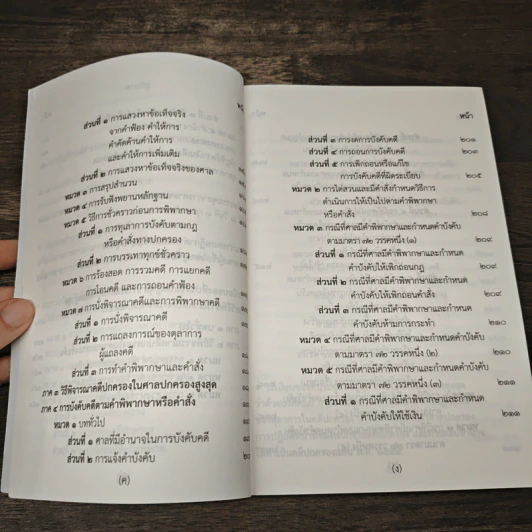 ส่วนที่ ๑ การแสวงหาข้อเท็จจริง
จากคำฟ้อง คำให้การ
คำคัดค้านคำให้การ
และคำให้การเพิ่มเติม
ส่วนที่ ๒ การแสวงหาข้อเท็จจริงของศาล
หมวด ๓ การสรุปสำนวน
หมวด ๔ การรับฟังพยานหลักฐาน
หมวด ๕ วิธีการชั่วคราวก่อนการพิพากษา
ส่วนที่ ๑ การทุเลาการบังคับตามกฎ
หรือคำสั่งทางปกครอง
ส่วนที่ ๒ การบรรเทาทุกข์ชั่วคราว
หมวด ๖ การร้องสอด การรวมคดี การแยกคดี
การโอนคดี และการถอนคำฟ้อง
หมวด ๗ การนั่งพิจารณาคดีและการพิพากษาคดี
ส่วนที่ ๑ การนั่งพิจารณาคดี
ส่วนที่ ๒ การแถลงการณ์ของตุลาการ
ผู้แถลงคดี
ส่วนที่ ๓ การทำคำพิพากษาและคำสั่ง
ภาค ๓ วิธีพิจารณาคดีปกครองในศาลปกครองสูงสุด
ภาค ๔ การบังคับคดีตามคำพิพากษาหรือคำสั่ง
หมวด ๑ บททั่วไป
ส่วนที่ ๑ ศาลที่มีอำนาจในการบังคับคดี
ส่วนที่ ๒ การแจ้งคำบังคับ
(ค)
หน้า
ส่วนที่ ๓ การงดการบังคับคดี ๒๐๑
ส่วนที่ ๔ การถอนการบังคับคดี ๒๐๓
ส่วนที่ ๕ การเพิกถอนหรือแก้ไข
การบังคับคดีที่ผิดระเบียบ ๒๐๕
หมวด ๒ การไต่สวนและมีคำสั่งกำหนดวิธีการ
ดำเนินการให้เป็นไปตามคำพิพากษา
หรือคำสั่ง ๒๐๘
หมวด ๓ กรณีที่ศาลมีคำพิพากษาและกำหนดคำบังคับ
ตามมาตรา ๗๒ วรรคหนึ่ง (๑) ๒๐๙
ส่วนที่ ๑ กรณีที่ศาลมีคำพิพากษาและกำหนด
คำบังคับให้เพิกถอนกฎ ๒๐๙
ส่วนที่ ๒ กรณีที่ศาลมีคำพิพากษาและกำหนด
คำบังคับให้เพิกถอนคำสั่ง ๒๐๙
ส่วนที่ ๓ กรณีที่ศาลมีคำพิพากษาและกำหนด
คำบังคับห้ามการกระทำ
หมวด ๔ กรณีที่ศาลมีคำพิพากษาและกำหนดคำบังคับ
ตามมาตรา ๗๒ วรรคหนึ่ง (๒)
หมวด ๕ กรณีที่ศาลมีคำพิพากษาและกำหนดคำบังคับ
ตามมาตรา ๗๒ วรรคหนึ่ง (๓) ๒๑๑
ส่วนที่ ๑ กรณีที่ศาลมีคำพิพากษาและกำหนด
คำบังคับให้ใช้เงิน ๒๑๑
(ง)